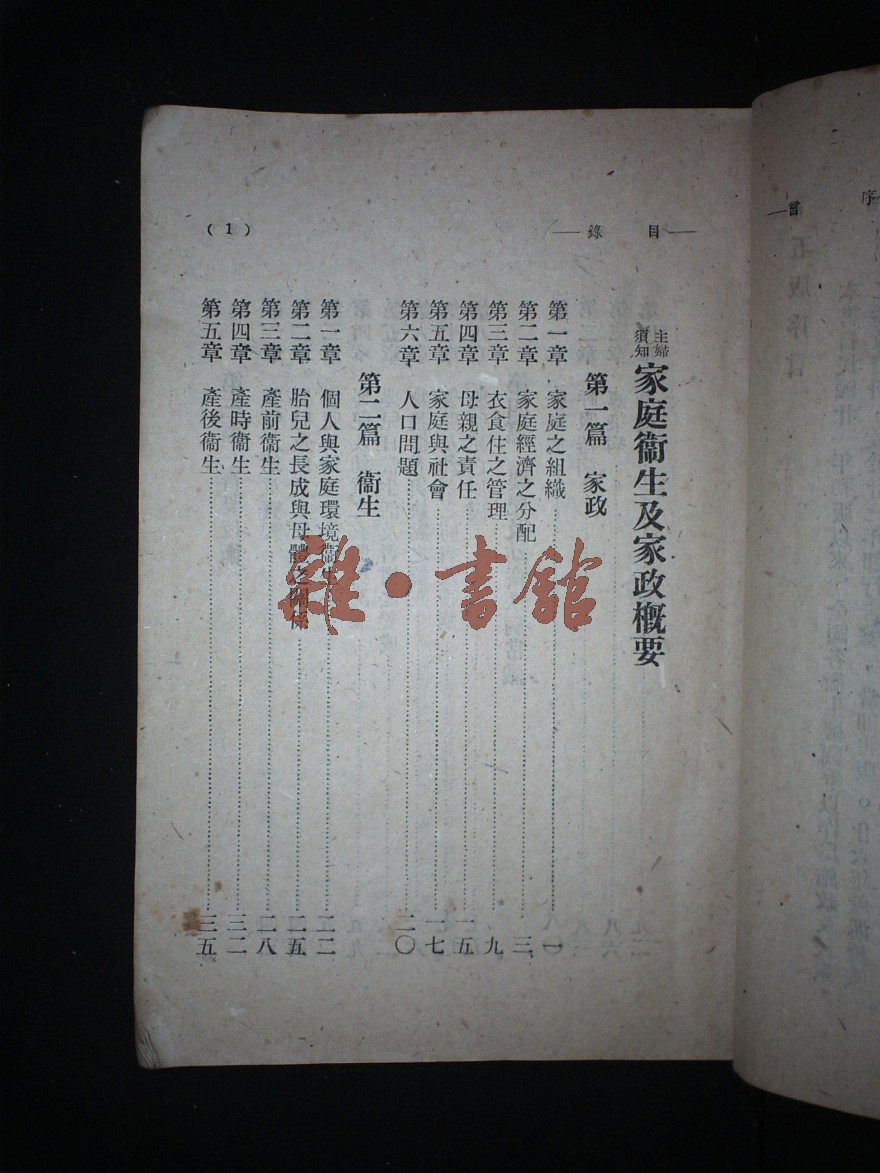 序
言
目錄
(1)
主婦須知
家庭衞生及家政概要
第一篇 家政
第一章 家庭之組織……一
第二章 家庭經濟之分配……三
第三章 衣食住之管理……九
第四章 母親之責任……一五
第五章 家庭與社會……一七
第六章 人口問題……二〇
第二篇 衞生
第一章 個人與家庭環境衞生……二二
第二章 胎兒之長成與母體之關係……二五
第三章 產前衞生……二八
第四章 產時衞生……三二
第五章 產後衞生……三五
雜·書館